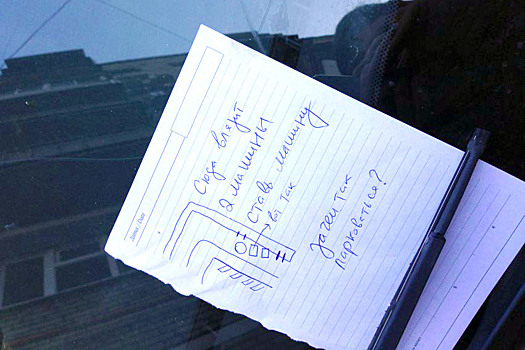 Сюда влезит
2 машины
Ставь машину
→ вот так
зачем так
парковаться?